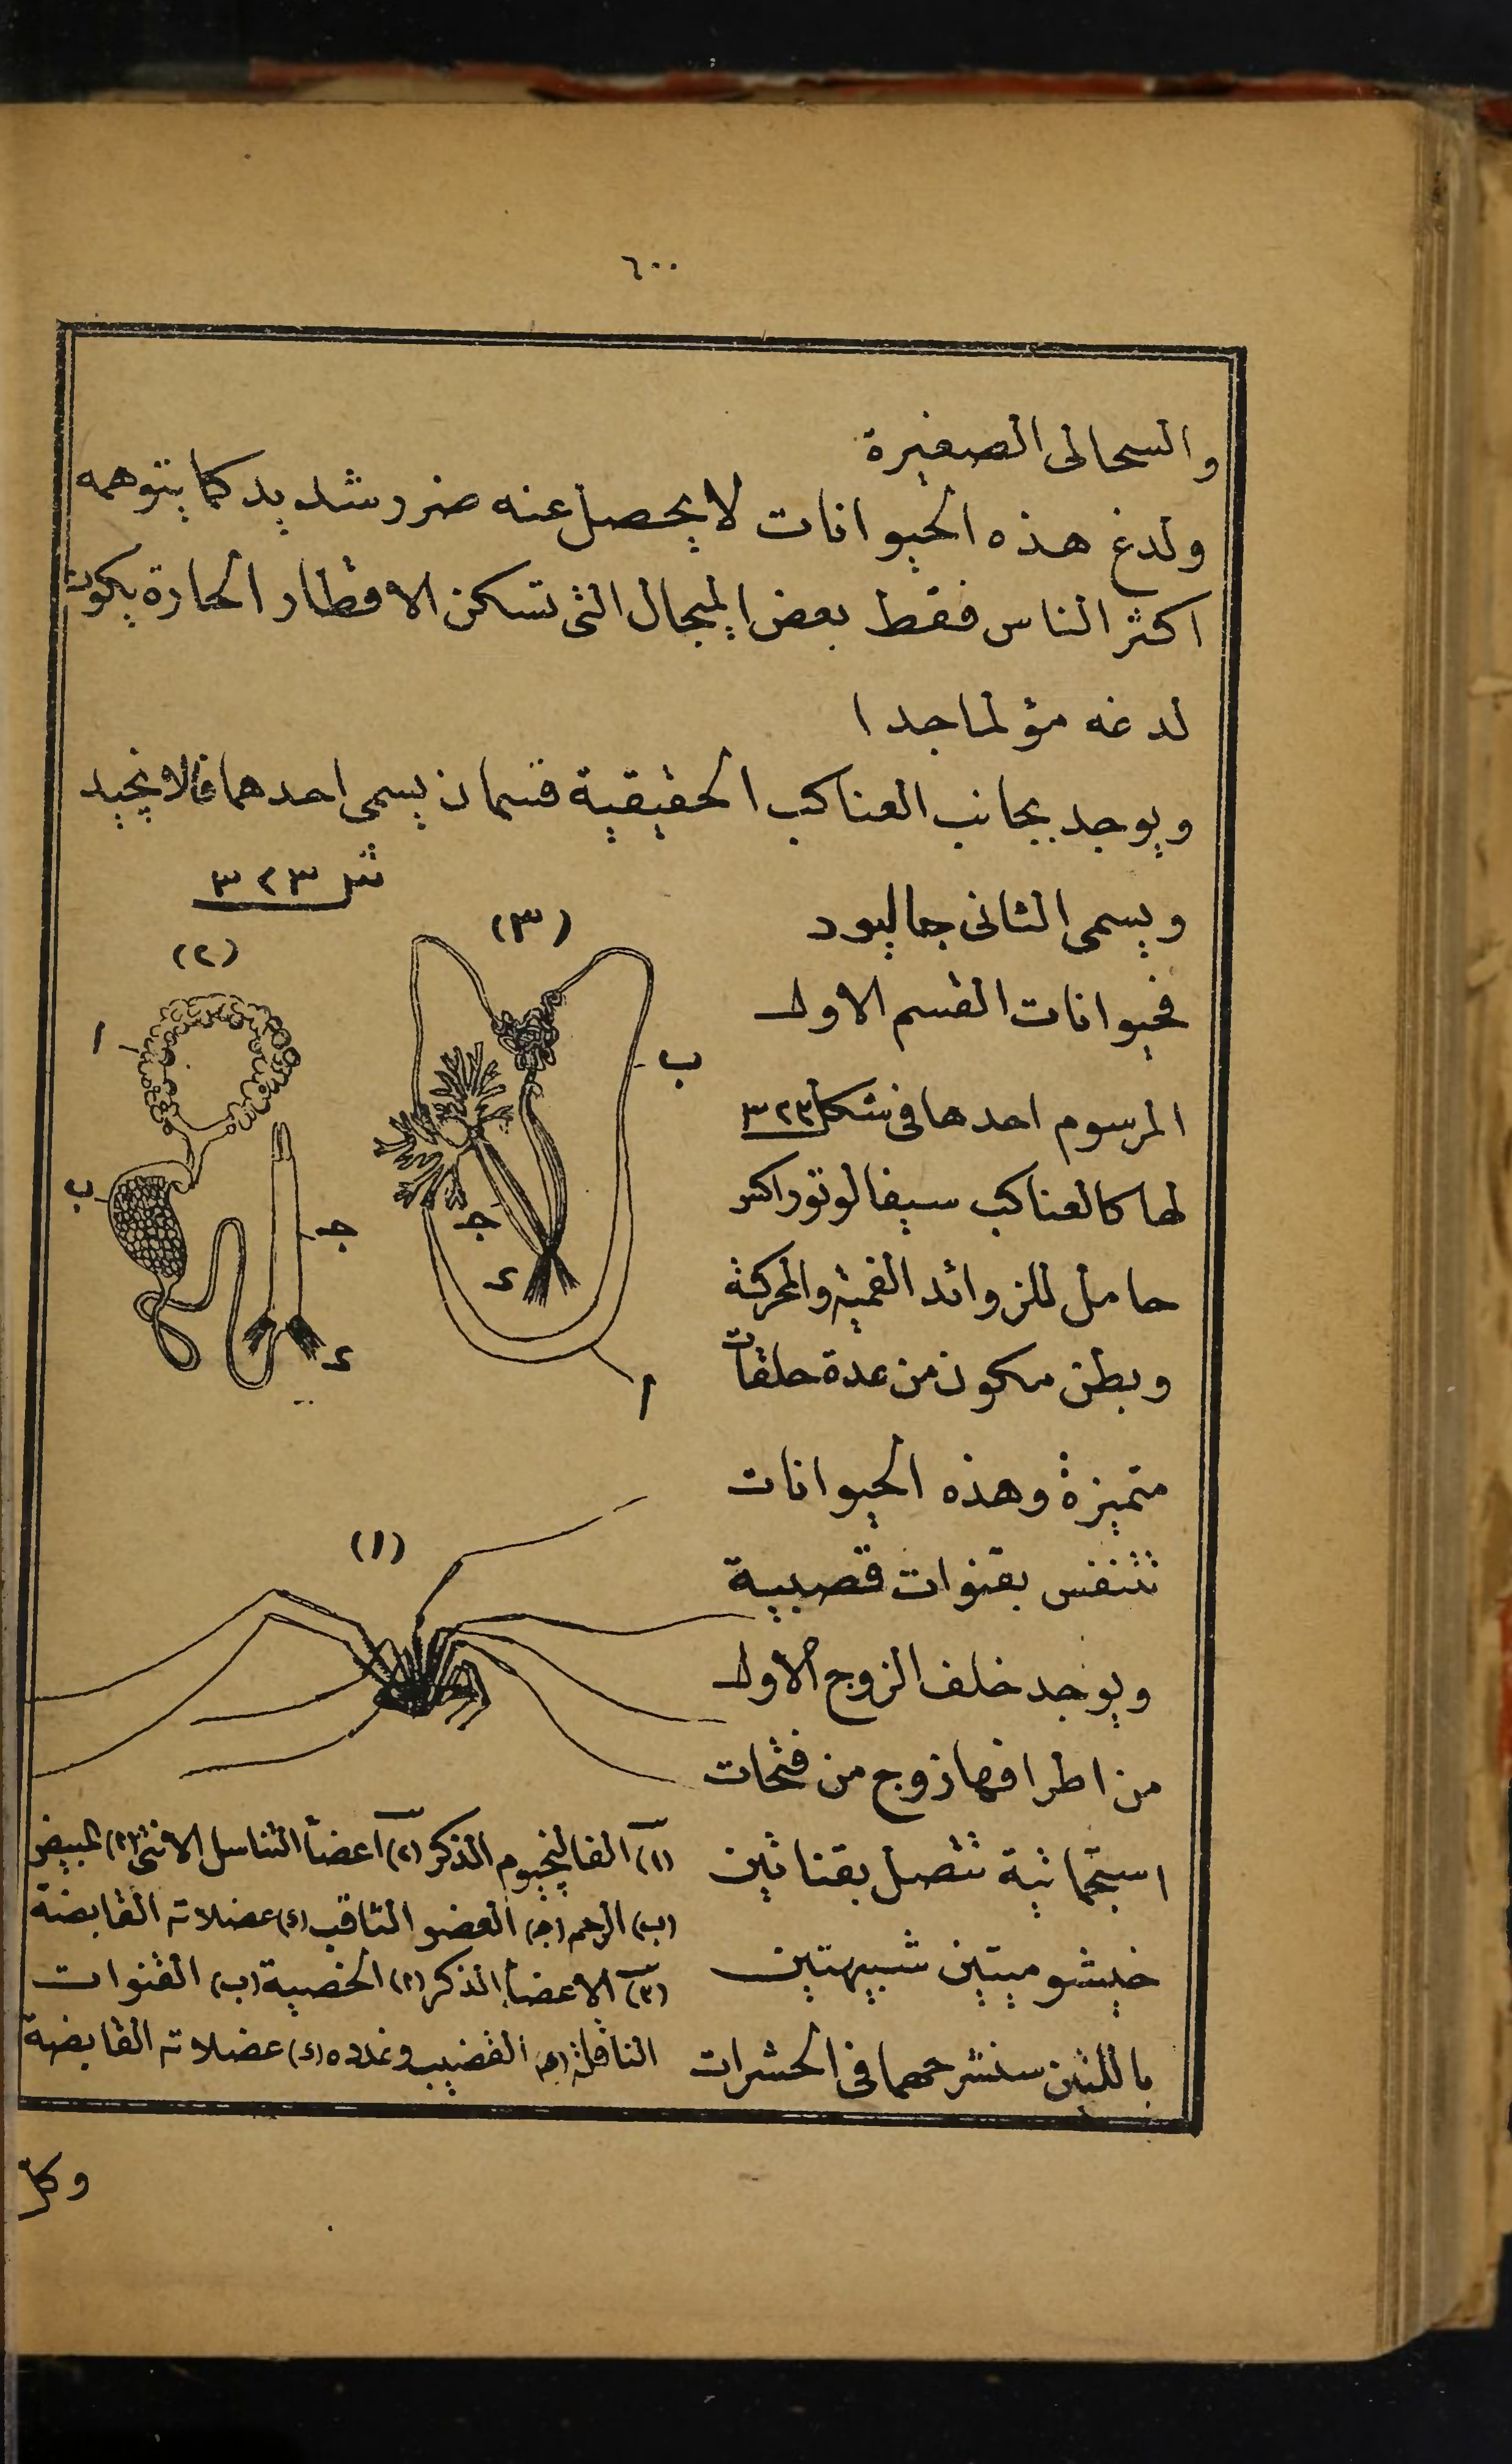 ٦٠٠
والسحالى الصغيرة
ولدغ هذه الحيوانات لا يحصل عنه ضرر شديد كما يتوهمه
اكثر الناس فقط بعض الميجال التى تسكن الاقطار الحارة يكون
لدغه مؤلما جدا
ويوجد بجانب العناكب الحقيقية قسمان يسمى احدهما فالانجيد
شكل ٣٢٣
ويسمى الثانى جاليود
فحيوانات القسم الاول
المرسوم احدها فى شكل ٣٢٣
لها كالعناكب سيفالوتوراكس
حامل للزوائد الفمية والمحركة
وبطن مكون من عدة حلقات
متميزة وهذه الحيوانات
تتنفس بقنوات قصبية
ويوجد خلف الزوج الاول
من اطرافها زوج من فتحات
استجماتية تتصل بقناتين
خيشوميتين شبيهتين
باللتين سنشرحهما فى الحشرات
(٣)
ب
جـ
د
ا
(٢)
ا
ب
جـ
د
(١)
(١) الفالنجيوم الذكر (٢) اعضا التناسل الانثى (ا) المبيض
(ب) الرحم (ج) العضو الثاقب (د) عضلاته القابضة
(٣) الاعضا الذكر (ا) الخصية (ب) القنوات
الناقلة (ج) القضيب وغدده (د) عضلاته القابضة
وكل